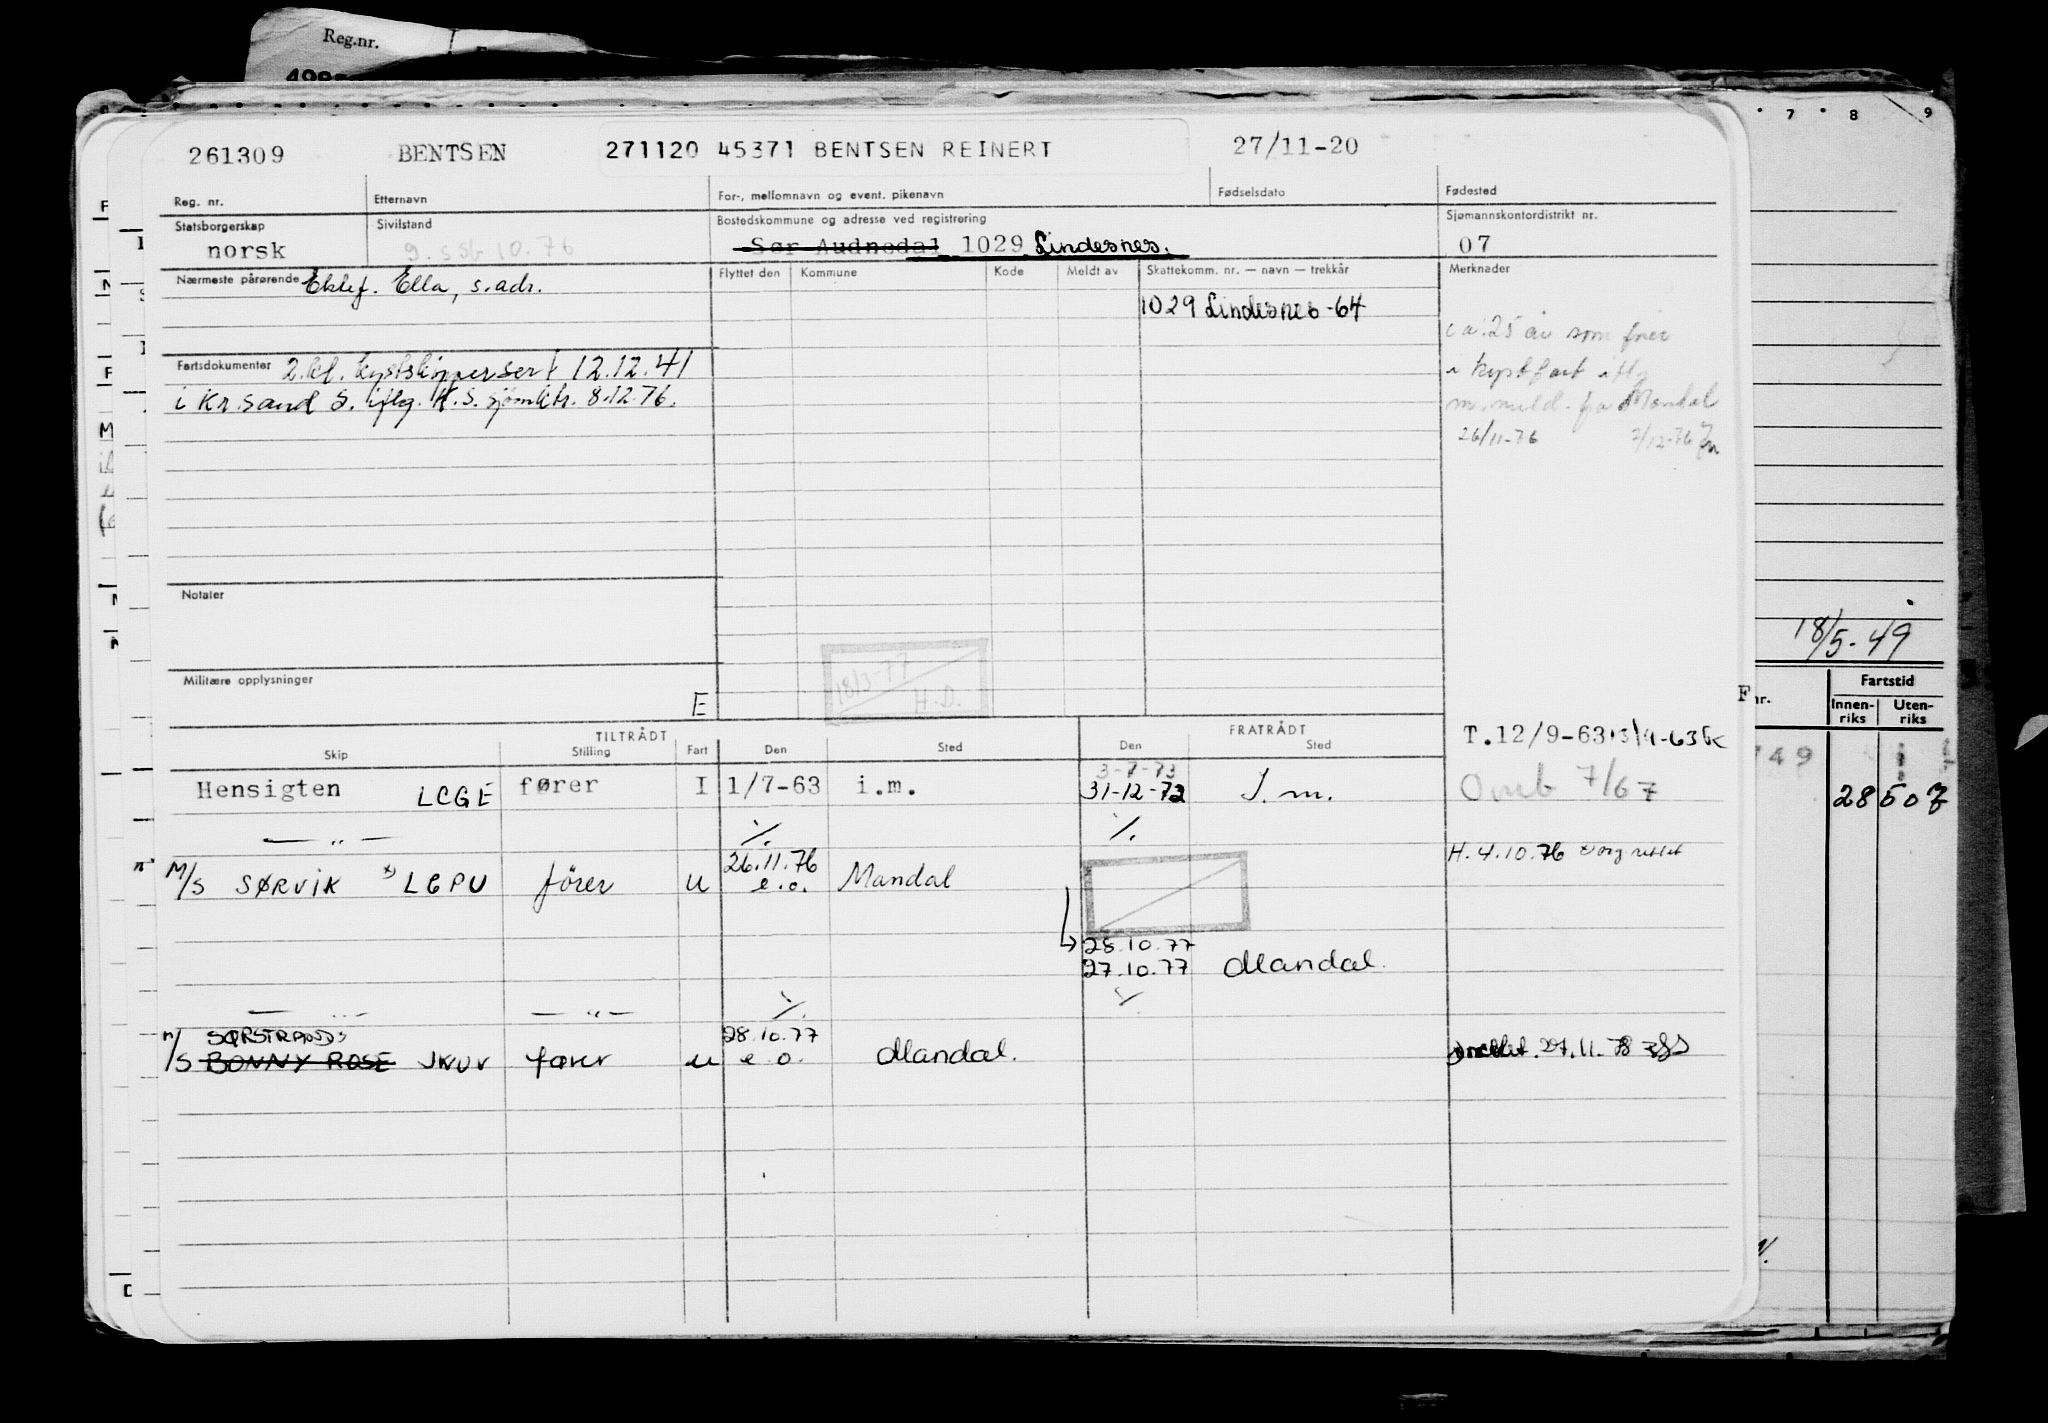 Reg.nr.
7 8 9
261309 BENTSEN 271120 45371 BENTSEN REINERT 27/11-20
Reg. nr. Etternavn For-, mellomnavn og event. pikenavn Fødselsdato Fødested
Statsborgerskap Sivilstand Bostedskommune og adresse ved registrering Sjømannskontordistrikt nr.
norsk g. s.st 10.76 Sør Audnedal 1029 Lindesnes. 07
Nærmeste pårørende Ektef. Ella, s.adr. Flyttet den Kommune Kode Meldt av Skattekomm. nr. — navn — trekkår Merknader
1029 Lindesnes -64
ca. 25 år som fører
i kystfart iflg
m.meld. fra Mandal
26/11-76 7/12-76
Fartsdokumenter 2.kl. kystskippersert 12.12.41
i Kr.sand S. iflg. K.S. sjømktr. 8.12.76.
Notater
18/5-49
18/3-77
H.D.
Militære opplysninger
E
Fartstid
nr. Innenriks Utenriks
TILTRÅDT FRATRÅDT
Skip Stilling Fart Den Sted Den Sted
T.12/9-63
Hensigten LCGE fører I 1/7-63 i.m. 3-7-73
31-12-72 I.m.
Omb 7/67
28 507
— " — ./. ./.
M/S SØRVIK x) LGPU fører U 26.11.76
e.o. Mandal
H. 4.10.76
28.10.77
27.10.77 Mandal.
— " — — " — ./. ./.
M/S SØRSTRAND
BONNY ROSE JKUV fører u 28.10.77
e.o. Mandal.
27.11.78